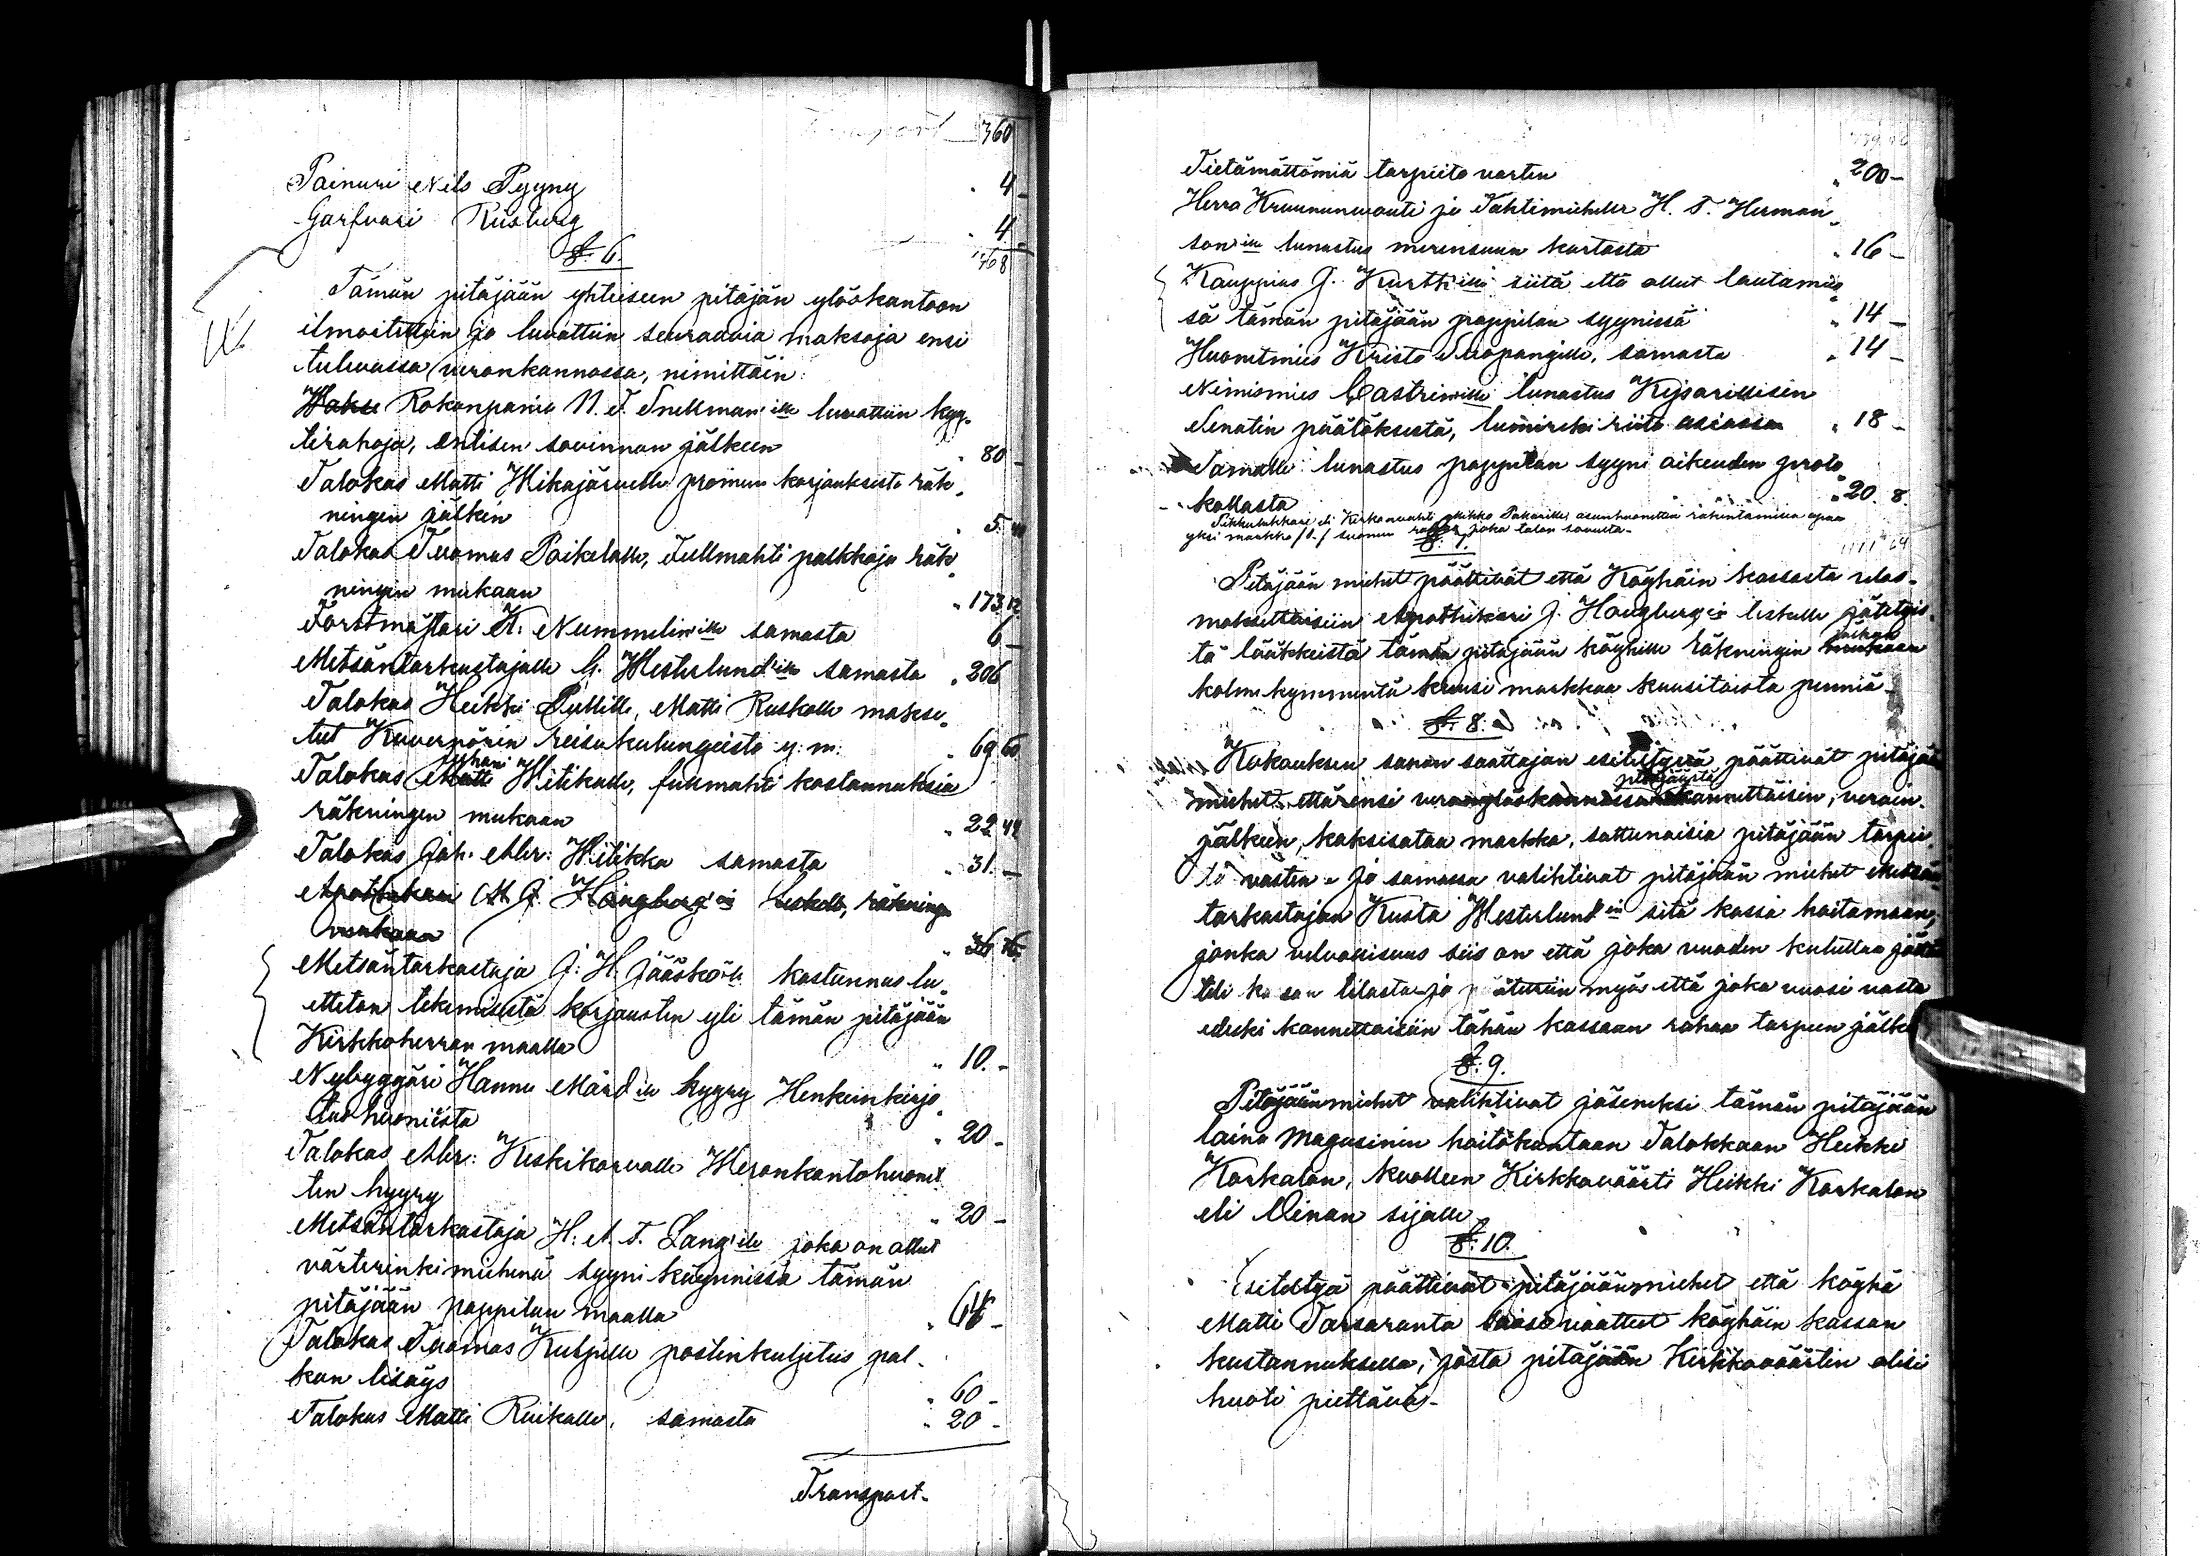 Transport 360
Painuri Nils Pyyny " 4 -
Garfvari Riisberg " 4 -
368
§: 6.
Tämän pitäjään yhteiseen pitäjän ylöskantoon
ilmoitettiin ja luvattiin seuraavia maksoja ensi
tulevassa veronkannossa, nimittäin:
Kokonpania N. J. Snellman'ille luvattiin kyy-
tirahoja, entisen sovinnon jälkeen " 80 -
Talokas Matti Wikajärvelle promun korjauksesta räk-
ningin jälkein " 5. 40
Talokas Tuomas Paikolalle, Fullmahti palkkoja räk-
ningin mukaan " 173.12
Forstmästari K. Nummelin'ille samasta 6 -
Metsäntarkastajalle G. Westerlund'ille samasta " 206
Talokas Heikki Pullille, Matti Ruskolle makse-
tut Kuvernörin reisukulungeista y: m: " 69.60
Juhani
Talokas Matti Wiitikalle, fullmahti kostannuksia
räkningen mukaan " 22.42
Talokas Joh. Abr: Wiitikka samasta " 31. -
Apothekari M. J. Haugberg'in Leskelle, räkningin
mukaan " 36 16
Metsäntarkastaja J. H. Jääskö'lle kostannus lu-
ettelon tekemisestä korjausten yli tämän pitäjään
Kirkkoherran maalla " 10. -
Nybyggäri Hannu Mård'ille hyyry Henkeinkirjo-
tus huoneista " 20 -
Talokas Abr: Keskikorvalle Weronkantohuonet-
ten hyyry " 20 -
Metsäntarkastaja H. A. T. Lang'ille joka on ollut
värterinkimiehenä syyni käynnissä tämän
pitäjään pappilan maalla " 64 -
Talokas Tuomas Kulpille postinkuljetus pal-
kan lisäys " 60 -
Talokas Matti Ruikalle, samasta " 20 -
Transport.
Tietämättömiä tarpeita varten " 200 -
Herra Kruununvouti ja Tähtimieheller H. T. Herman-
son'ille lunastus merensuun kartasta " 16 -
Kauppias J. Kurtti'lle siitä että ollut lautamies-
sä tämän pitäjään pappilan syynissä " 14 -
Huonetmies Kristo Seropangille, samasta " 14 -
Nimismies Castren'ille lunastus Keisarillisen
Senatin päätöksestä, lumireki riita asiassa " 18 -
Samalle lunastus pappilan syyni oikeuden proto-
kollasta " 20. 8
Pikkulukkari eli Kirkonvahti Mikko Pakarille, asuinhuonetten rakentamisen apua
yksi markka /1-/ suomen rahaa joka talon savusta-
§: 7.
Pitäjään miehet päättivät että Köyhäin kassasta ulos-
maksettaisiin Apothikari J. Haugberg'in leskelle jätetyis-
jälkeen
tä lääkkeistä tämän pitäjään köyhille räkningin mukaan
kolme kymmentä kuusi markkaa kuusitoista penniä-
§: 8.
Kokouksen sanan saattajan esitettyä päättivät pitäjään
pitäjäästä
miehet että ensi veroinylöskannossa kannettaisiin, veroin-
jälkeen, kaksisataa markka, sattunaisia pitäjään tarpei-
ta vasten. Ja samassa valihtivat pitäjään miehet Metsän-
tarkastajan Kusta Westerlund'in sitä kassa hoitamaan,
jonka velvollisuus siis on että joka vuoden kuluttua jättää
tili kassan tilasta ja päätettiin myös että joka vuosi vasta
edeski kannettaisiin tähän kassaan rahaa tarpeen jälkeen
§: 9.
Pitäjäänmiehet valihtivat jäseneksi tämän pitäjään
laina Magasinin hoitokuntaan Talokkaan Heikki
Korkalon, kuolleen Kirkkoväärti Heikki Korkalon
eli Oinan sijalle.
§: 10.
Esitettyä päättivät pitäjäänmiehet että köyhä
Matti Tarsaranta saisi vaatteet köyhäin kassan
kustannuksella, josta pitäjään Kirkkoväärtin olisi
huoli piettävä-